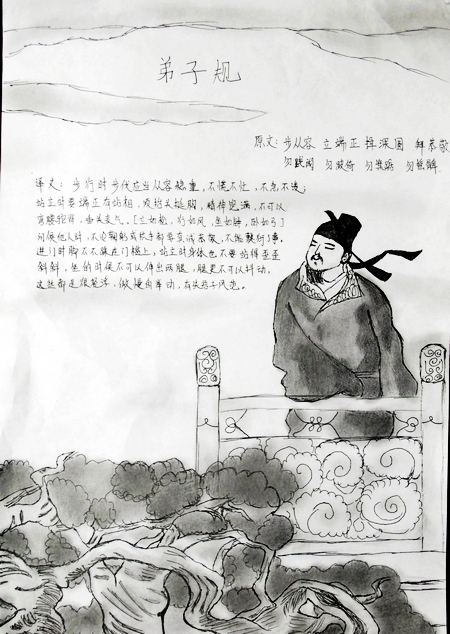 弟子规
原文: 步从容 立端正 揖深圆 拜恭敬
勿践阈 勿跛倚 勿箕踞 勿摇髀
译文: 步行时步伐应当从容稳重,不慌不忙,不急不缓;
站立时要端正有站相,须抬头挺胸,精神饱满,不可以
弯腰驼背,垂头丧气。[立如松,行如风,坐如钟,卧如弓]
问候他人时,不论鞠躬或拱手都要真诚恭敬,不能敷衍了事。
进门时脚不踩在门槛上,站立时身体也不要站得歪歪
斜斜,坐的时候不可以伸出两腿,腿更不可以抖动,
这些都是很轻浮、傲慢的举动,有失君子风范。